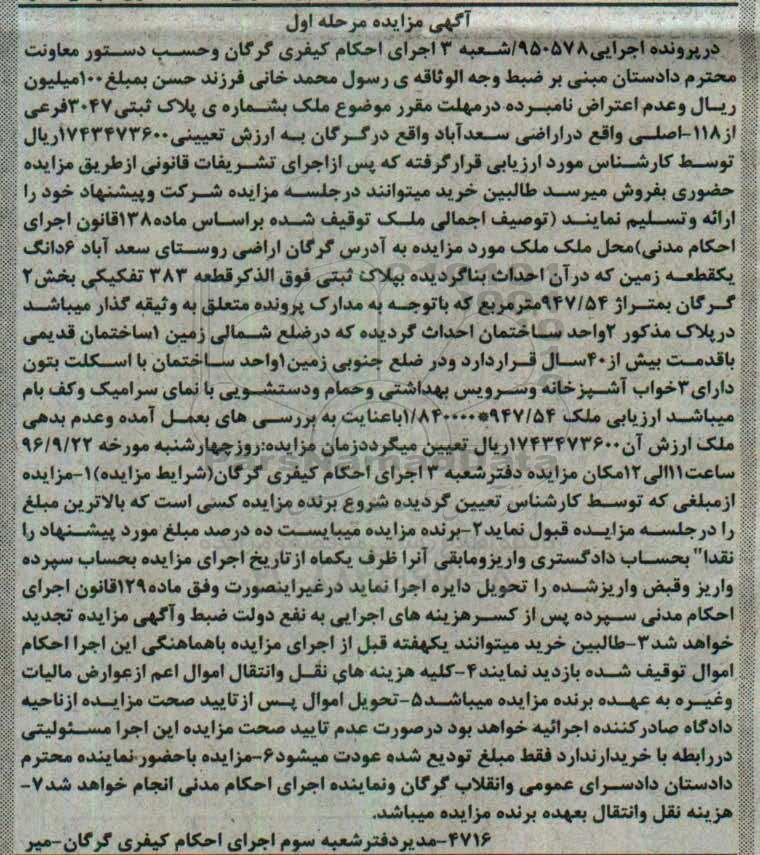 آگهی مزایده مرحله اول
درپرونده اجرایی۹۵۰۵۷۸/شعبه ۳ اجرای احکام کیفری گرگان وحسب دستور معاونت
محترم دادستان مبنی بر ضبط وجه الوثاقه ی رسول محمد خانی فرزند حسن بمبلغ۱۰۰میلیون
ریال وعدم اعتراض نامبرده درمهلت مقرر موضوع ملک بشماره ی پلاک ثبتی۳۰۴۷فرعی
از۱۱۸-اصلی واقع دراراضی سعدآباد واقع درگرگان به ارزش تعیینی۱۷۴۳۴۷۳۶۰۰ریال
توسط کارشناس مورد ارزیابی قرارگرفته که پس ازاجرای تشریفات قانونی ازطریق مزایده
حضوری بفروش میرسد طالبین خرید میتوانند درجلسه مزایده شرکت وپیشنهاد خود را
ارائه وتسلیم نمایند (توصیف اجمالی ملک توقیف شده براساس ماده۱۳۸قانون اجرای
احکام مدنی)محل ملک ملک مورد مزایده به آدرس گرگان اراضی روستای سعد آباد ۶دانگ
یکقطعه زمین که درآن احداث بناگردیده بپلاک ثبتی فوق الذکرقطعه ۳۸۳ تفکیکی بخش۲
گرگان بمتراژ ۹۴۷/۵۴مترمربع که باتوجه به مدارک پرونده متعلق به وثیقه گذار میباشد
درپلاک مذکور ۲واحد ساختمان احداث گردیده که درضلع شمالی زمین ۱ساختمان قدیمی
باقدمت بیش از۴۰سال قراردارد ودر ضلع جنوبی زمین۱واحد ساختمان با اسکلت بتون
دارای۳خواب آشپزخانه وسرویس بهداشتی وحمام ودستشویی با نمای سرامیک وکف بام
میباشد ارزیابی ملک ۹۴۷/۵۴*۱/۸۴۰۰۰۰باعنایت به بررسی های بعمل آمده وعدم بدهی
ملک ارزش آن۱۷۴۳۴۷۳۶۰۰ریال تعیین میگرددزمان مزایده:روزچهارشنبه مورخه ۹۶/۹/۲۲
ساعت۱۱الی۱۲مکان مزایده دفترشعبه ۳ اجرای احکام کیفری گرگان(شرایط مزایده)۱-مزایده
ازمبلغی که توسط کارشناس تعیین گردیده شروع برنده مزایده کسی است که بالاترین مبلغ
را درجلسه مزایده قبول نماید۲-برنده مزایده میبایست ده درصد مبلغ مورد پیشنهاد را
نقدا" بحساب دادگستری واریزومابقی آنرا ظرف یکماه ازتاریخ اجرای مزایده بحساب سپرده
واریز وقبض واریزشده را تحویل دایره اجرا نماید درغیراینصورت وفق ماده۱۲۹قانون اجرای
احکام مدنی سپرده پس از کسرهزینه های اجرایی به نفع دولت ضبط وآگهی مزایده تجدید
خواهد شد۳-طالبین خرید میتوانند یکهفته قبل از اجرای مزایده باهماهنگی این اجرا احکام
اموال توقیف شده بازدید نمایند۴-کلیه هزینه های نقل وانتقال اموال اعم ازعوارض مالیات
وغیره به عهده برنده مزایده میباشد۵-تحویل اموال پس ازتایید صحت مزایده ازناحیه
دادگاه صادرکننده اجرائیه خواهد بود درصورت عدم تایید صحت مزایده این اجرا مسئولیتی
دررابطه با خریدارندارد فقط مبلغ تودیع شده عودت میشود۶-مزایده باحضور نماینده محترم
دادستان دادسرای عمومی وانقلاب گرگان ونماینده اجرای احکام مدنی انجام خواهد شد۷-
هزینه نقل وانتقال بعهده برنده مزایده میباشد.
۴۷۱۶-مدیردفترشعبه سوم اجرای احکام کیفری گرگان-میر